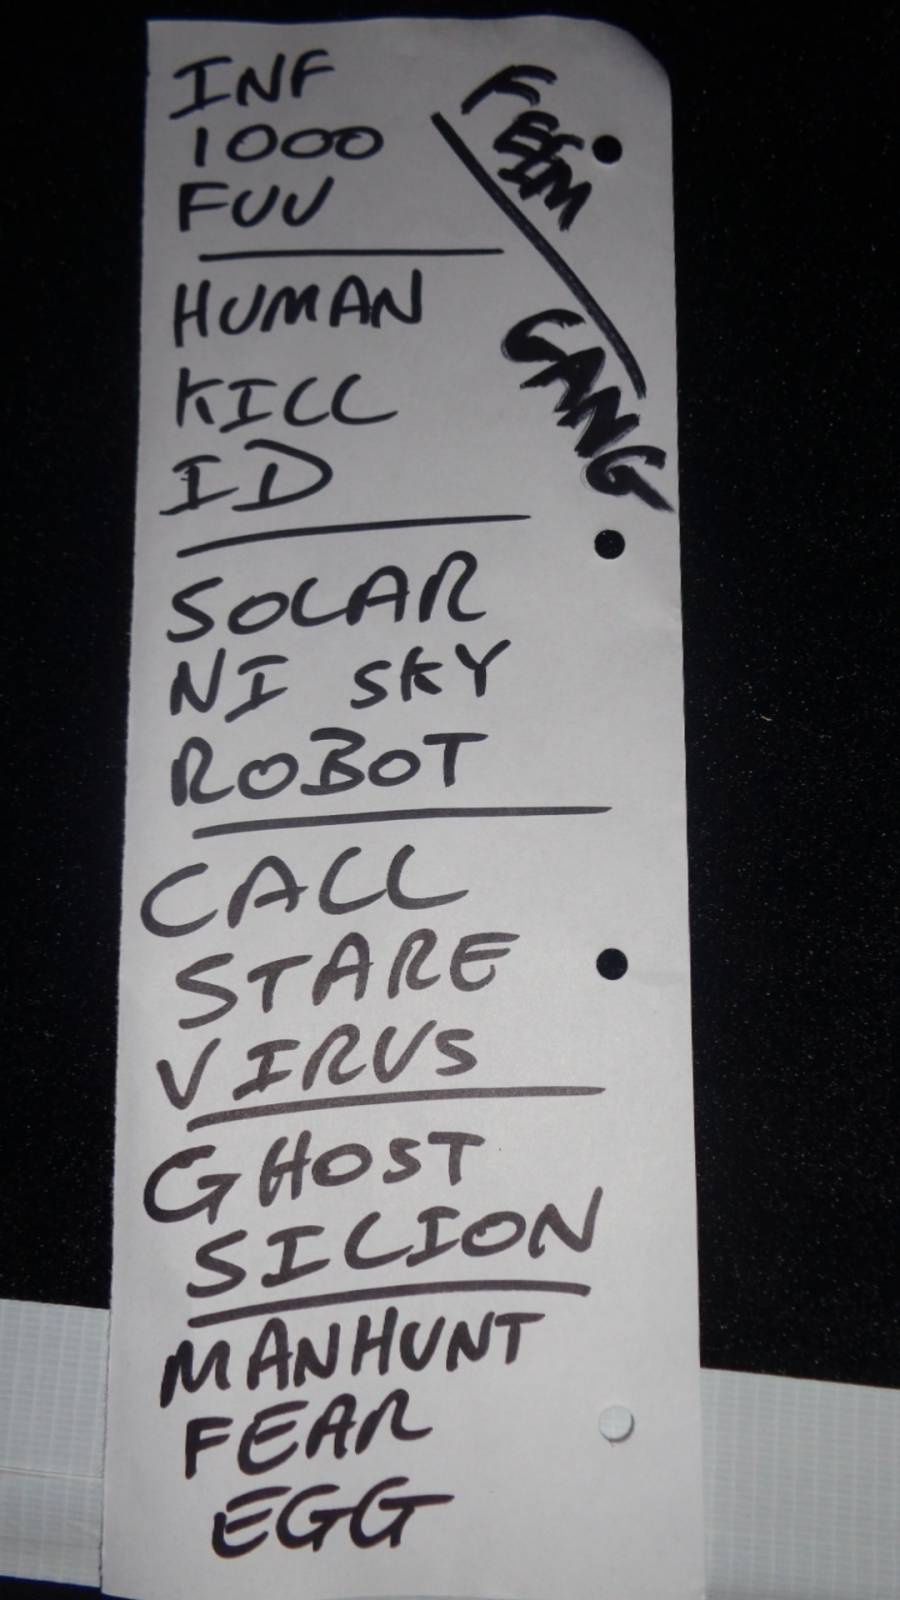 INF
1000
FUU
HUMAN
KILL
ID
SOLAR
NI SKY
ROBOT
CALL
STARE
VIRUS
GHOST
SILION
MANHUNT
FEAR
EGG
GANG